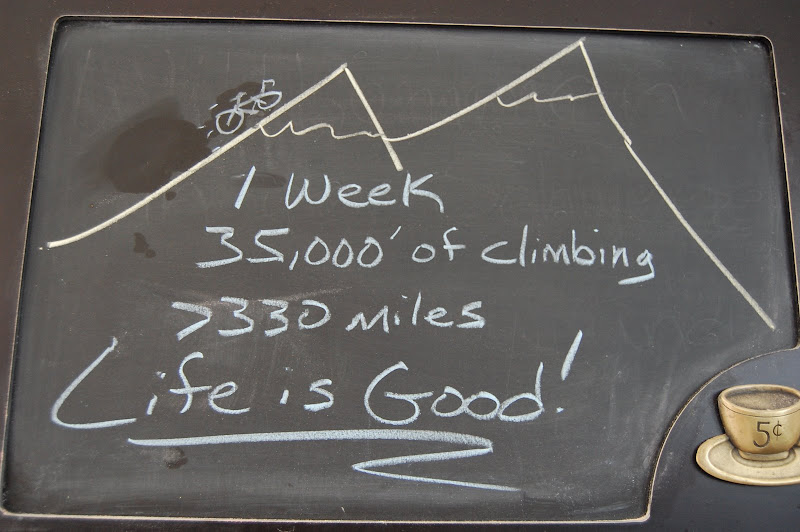 1 Week
35,000' of climbing
>330 miles
Life is Good!
5¢